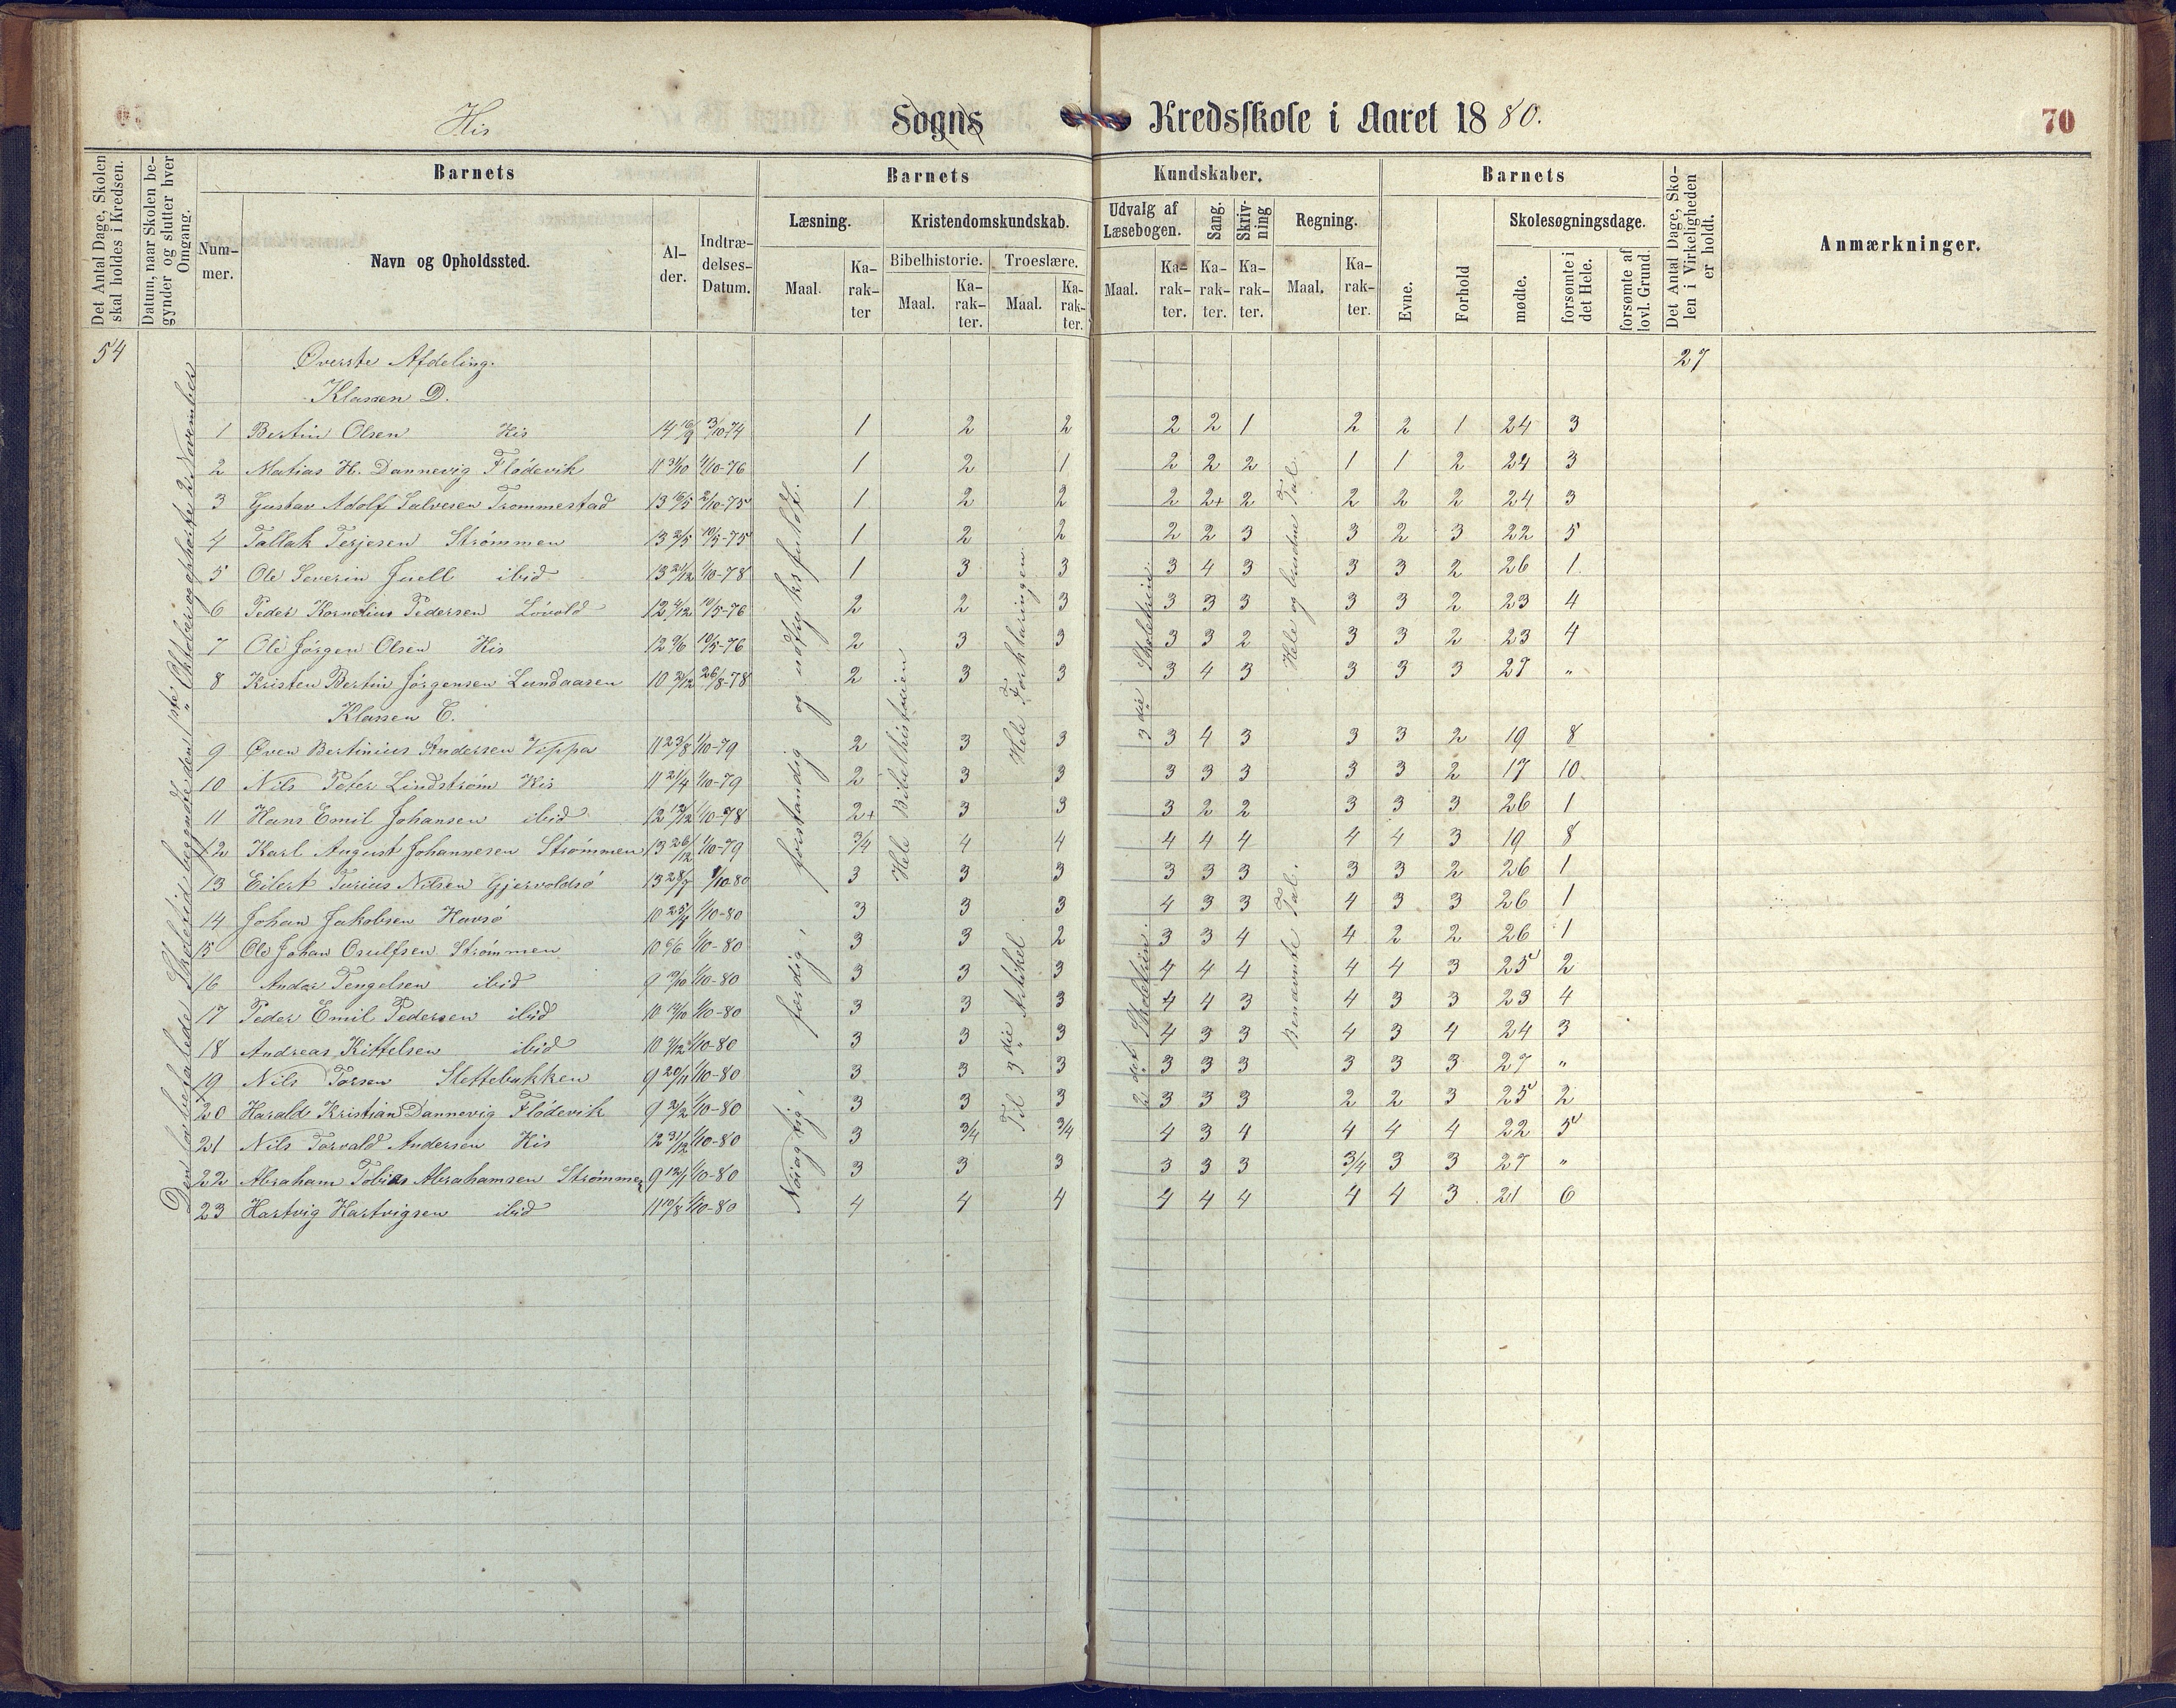 His Sogns Kredsskole i Aaret 1880. 70
Det Antal Dage, Skolen skal holdes i Kredsen.
Datum, naar Skolen begynder og slutter hver Omgang.
Barnets Barnets Kundskaber. Barnets
Det Antal Dage, Skolen i Virkeligheden er holdt.
Anmærkninger.
Nummer. Navn og Opholdssted. Alder. Indtrædelses-Datum.
Læsning. Kristendomskundskab. Udvalg af Læsebogen. Sang. Skrivning Regning. Evne. Forhold Skolesøgningsdage.
Bibelhistorie. Troeslære.
Maal. Karakter Maal. Karakter. Maal. Karakter. Maal. Karakter. Karakter. Karakter. Maal. Karakter. mødte. forsømte i det Hele. forsømte af lovl. Grund.
54 Øverste Afdeling. 27
Klassen D.
1 Bertin Olsen His 14 3/10-74 1 2 2 2 2 1 2 2 1 24 3
2 Matias H. Dannevig Flødevik 11 31/10 1/10-76 1 2 1 2 2 2 1 1 2 24 3
3 Gustav Adolf Salvesen Trommestad 13 16/5 2/10-75 1 2 2 2 2+ 2 2 2 2 24 3
4 Tallak Terjesen Strømmen 13 2/5 10/5-75 1 2 2 2 2 3 3 2 3 22 5
5 Ole Severin Juell ibid 13 21/12 1/10-78 1 3 3 3 4 3 3 3 2 26 1
6 Peder Kornelius Pedersen Løvold 12 4/12 10/5-76 2 2 3 3 3 3 3 3 2 23 4
7 Ole Jørgen Olsen His 12 9/6 10/5-76 2 3 3 3 3 2 3 3 2 23 4
8 Kristen Bertin Jørgensen Lundaasen 10 21/12 26/8-78 2 3 3 3 4 3 3 3 3 27 "
Klassen C.
9 Øven Bertinius Andersen Vippa 11 23/8 1/10-79 2 3 3 3 4 3 3 3 2 19 8
10 Nils Peter Lindstrøm His 11 21/4 1/10-79 2 3 3 3 3 3 3 3 2 17 10
11 Hans Emil Johansen ibid 12 12/12 1/10-78 2+ 3 3 3 2 2 3 3 3 26 1
12 Karl August Johannesen Strømmen 13 26/12 1/10-79 3/4 4 4 4 4 4 4 4 3 19 8
13 Eilert Turius Nilsen Gjervoldsø 13 28/7 1/10-80 3 3 3 3 3 3 3 3 2 26 1
14 Johan Jakobsen Havsø 10 25/4 1/10-80 3 3 3 4 3 3 4 3 3 26 1
15 Ole Johan Osulfsen Strømmen 10 6/6 1/10-80 3 3 2 3 3 4 4 2 2 26 1
16 Anders Tengelsen ibid 9 1/10-80 3 3 3 4 4 4 4 4 3 25 2
17 Peder Emil Pedersen ibid 10 1/10-80 3 3 3 4 4 3 4 3 3 23 4
18 Andreas Kittelsen ibid 10 1/10-80 3 3 3 4 3 3 4 3 4 24 3
19 Nils Torsen Slettebakken 9 20/11 1/10-80 3 3 3 3 3 3 3 3 3 27 "
20 Harald Kristian Dannevig Flødevik 9 2/2 1/10-80 3 3 3 3 3 3 2 2 3 25 2
21 Nils Torvald Andersen His 12 31/12 1/10-80 3 3/4 3/4 4 3 4 4 4 4 22 5
22 Abraham Tobias Abrahamsen Strømmen 9 1/10-80 3 3 3 3 3 3 3/4 3 3 27 "
23 Hartvig Hartvigsen ibid 11 10/8 1/10-80 4 4 4 4 4 4 4 4 3 21 6
Den lovbefalede Skoletid begyndte den 1ste Oktober og ophørte 2. November
Nøiagtig, færdig, forstandig og udtryksfuldt.
Hele Bibelhistorien
Hele Forklaringen
Til 3die Artikel
3die Skoletrin
2det Skoletrin.
Hele og brudne Tal.
Benævnte Tal.